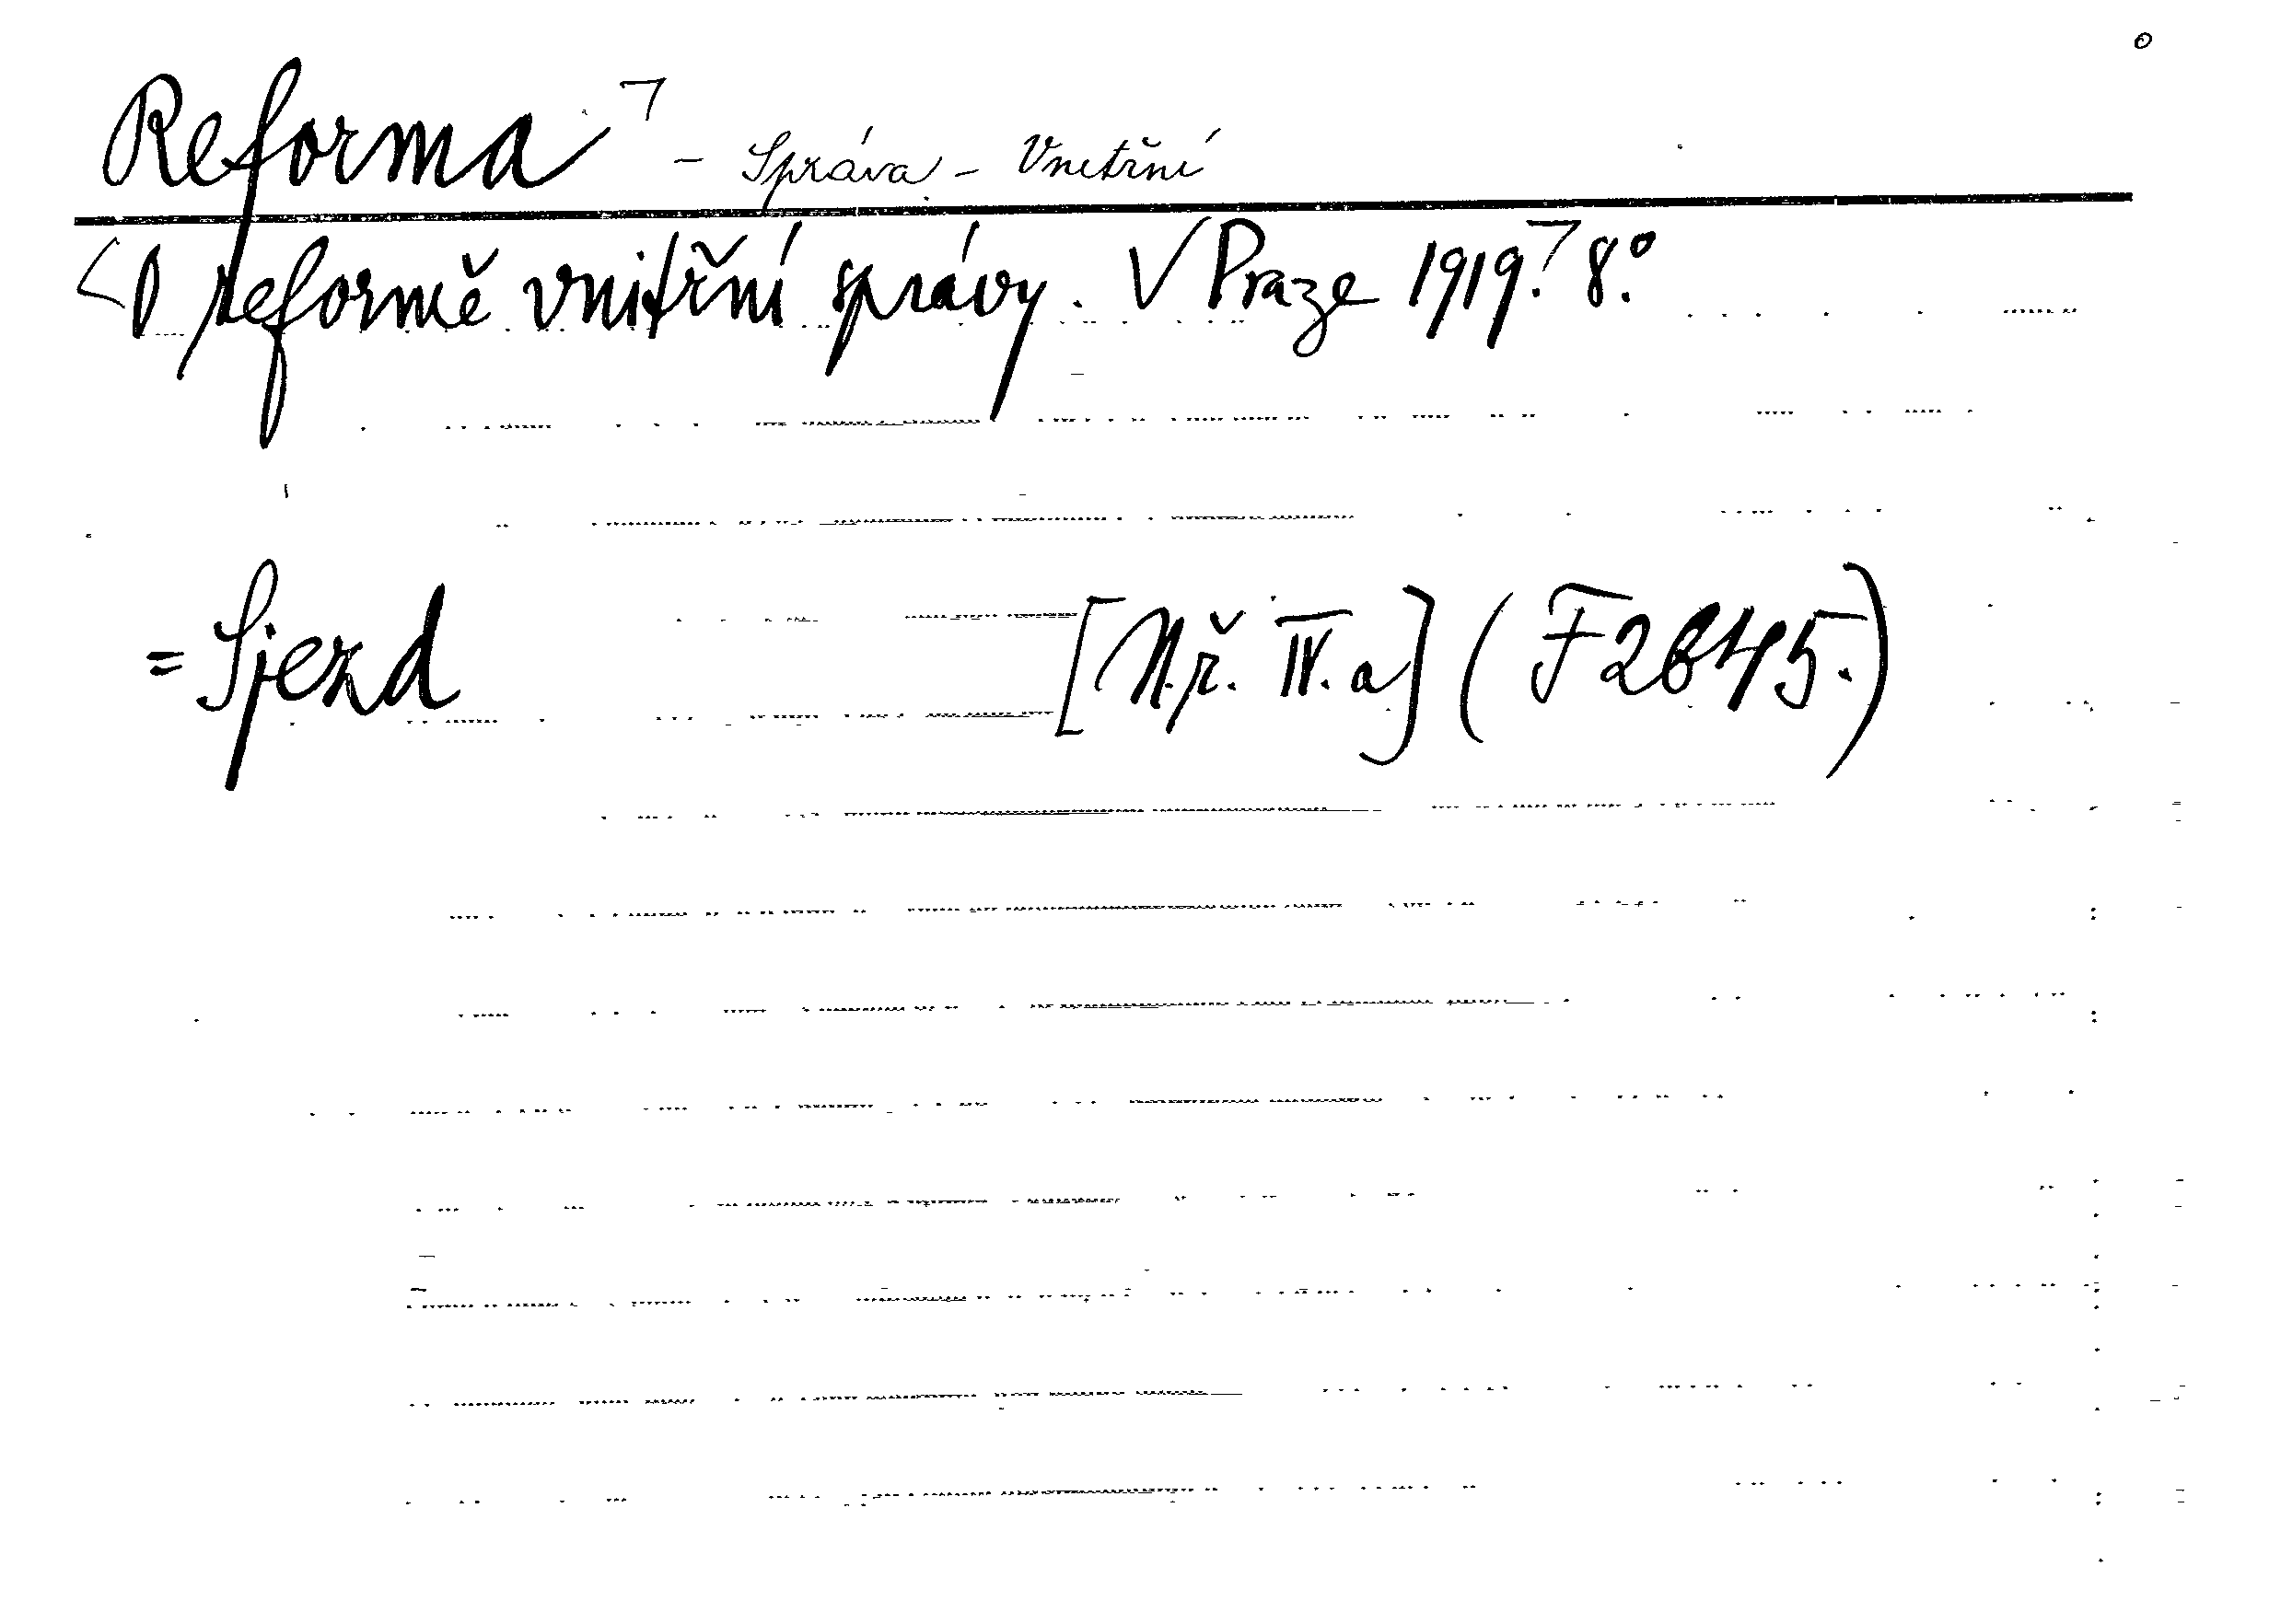 Reforma - Správa - Vnitřní
O reformě vnitřní správy. V Praze 1919. 8.°
= Sjezd [N.ř. IV. a] (F2645.)